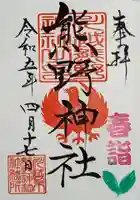 奉拝
春詣
熊野神社
令和五年四月十七日